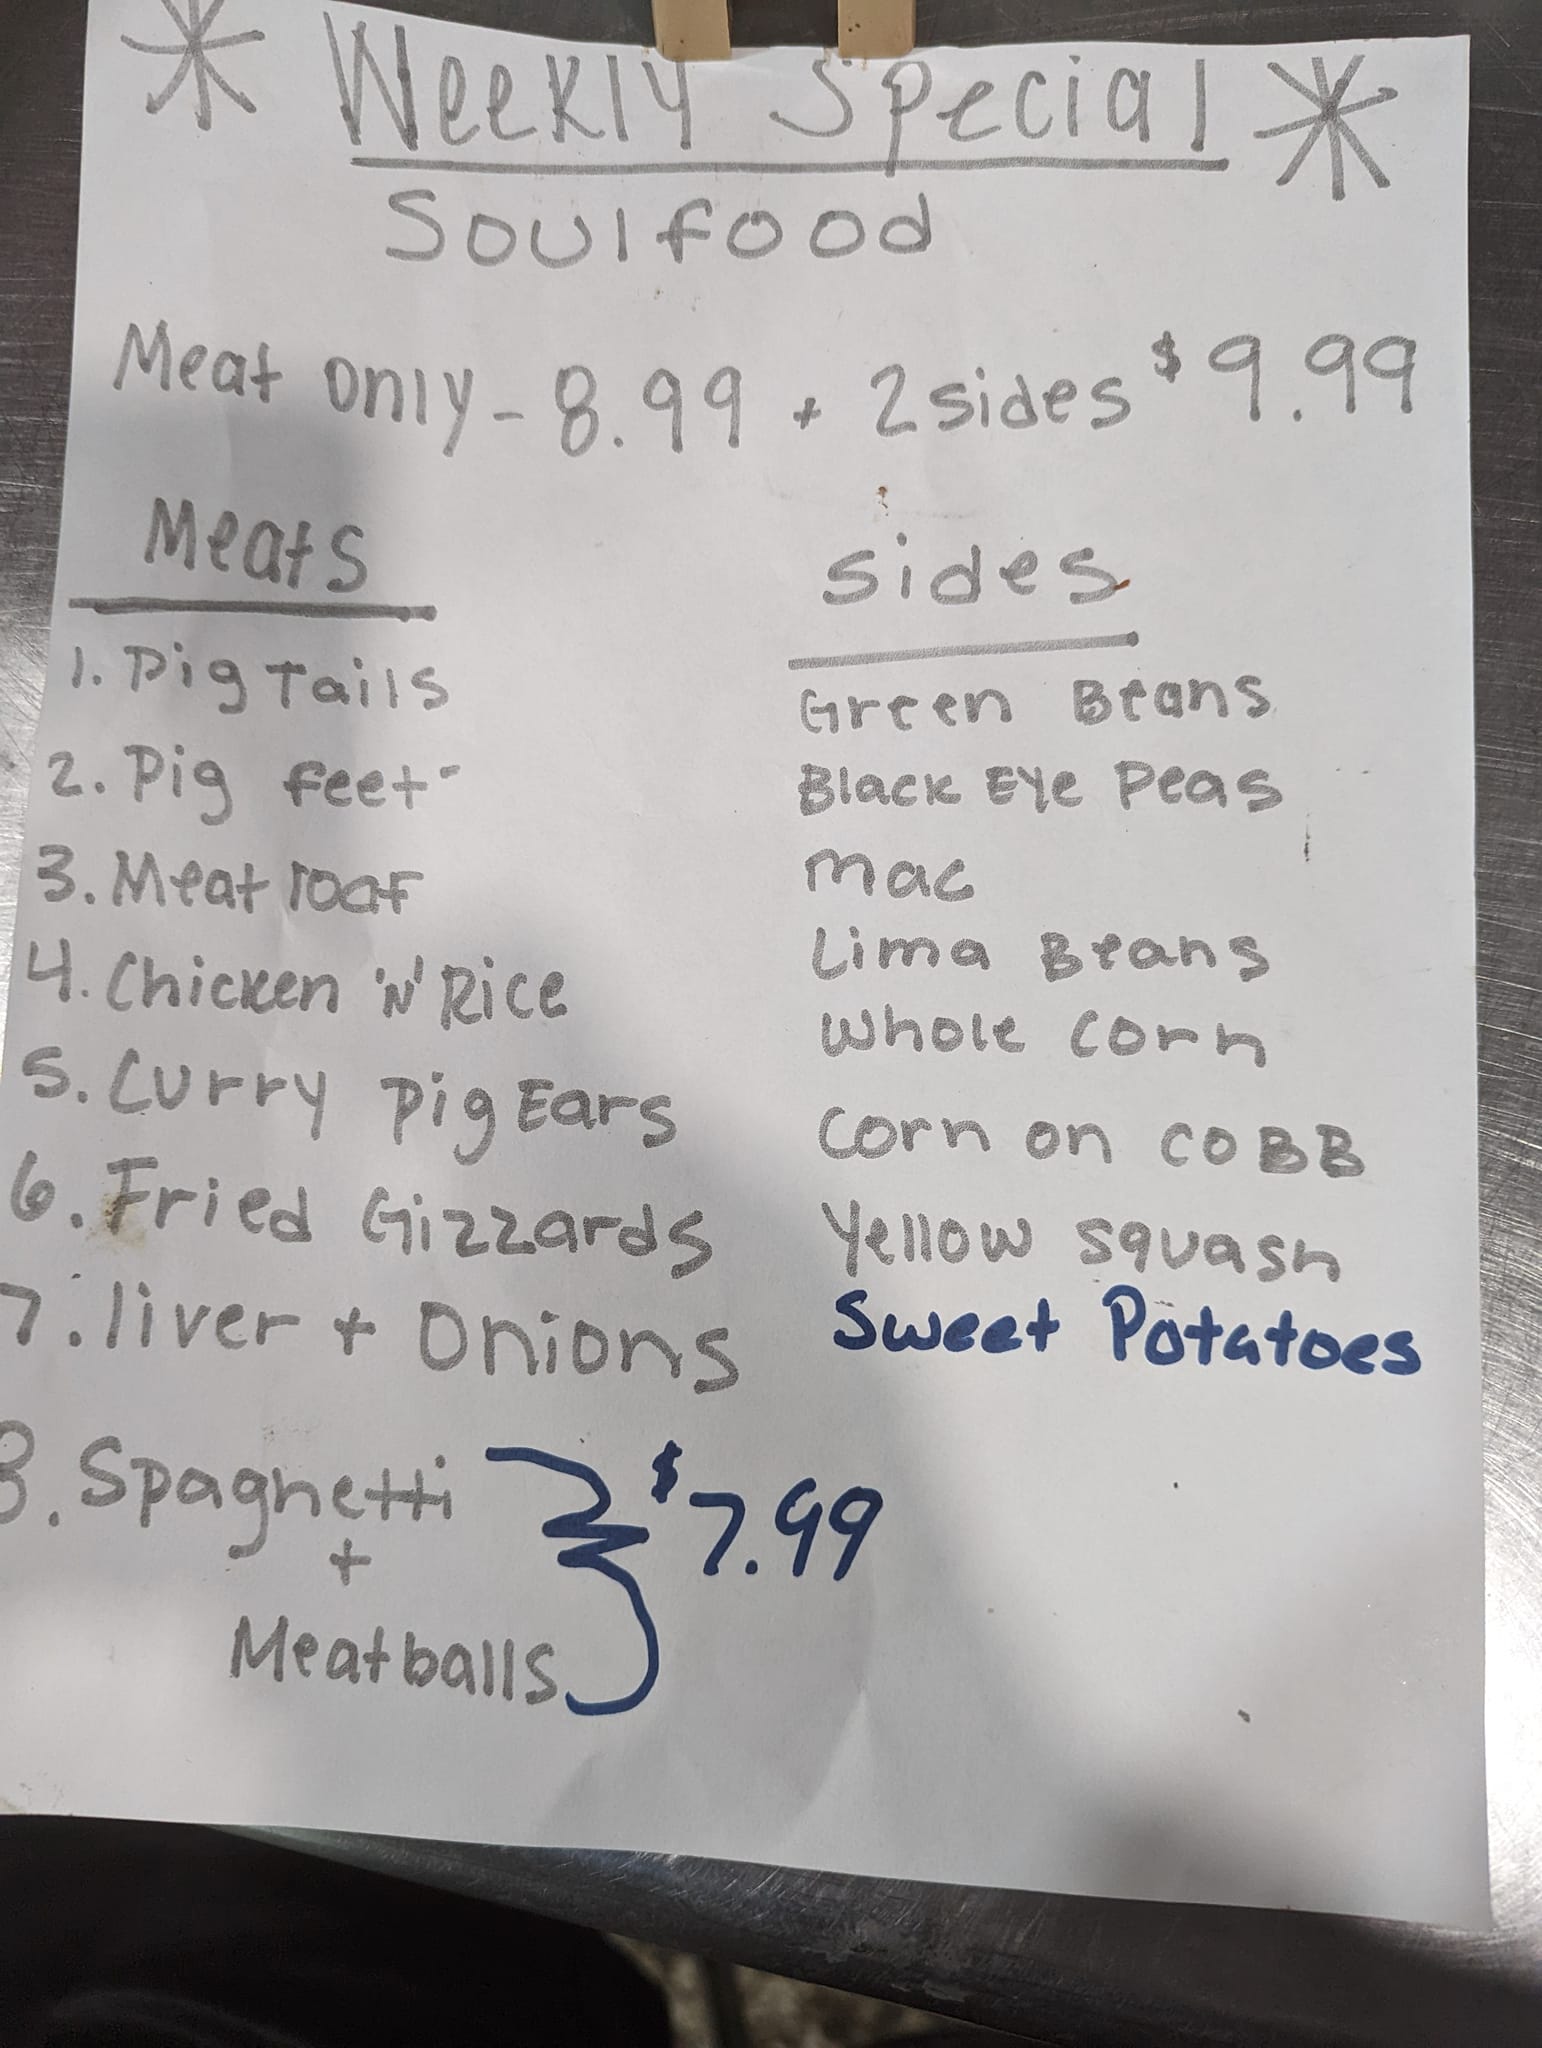 Weekly Special
Soulfood
Meat only - 8.99 + 2 sides $9.99
Meats
1. Pig Tails
2. Pig feet
3. Meat loaf
4. Chicken 'N' Rice
5. Curry Pig Ears
6. Fried Gizzards
7. liver + Onions
8. Spaghetti
+
Meatballs
$7.99
Sides
Green Beans
Black Eye Peas
Mac
Lima Beans
Whole Corn
Corn on COBB
Yellow squash
Sweet Potatoes